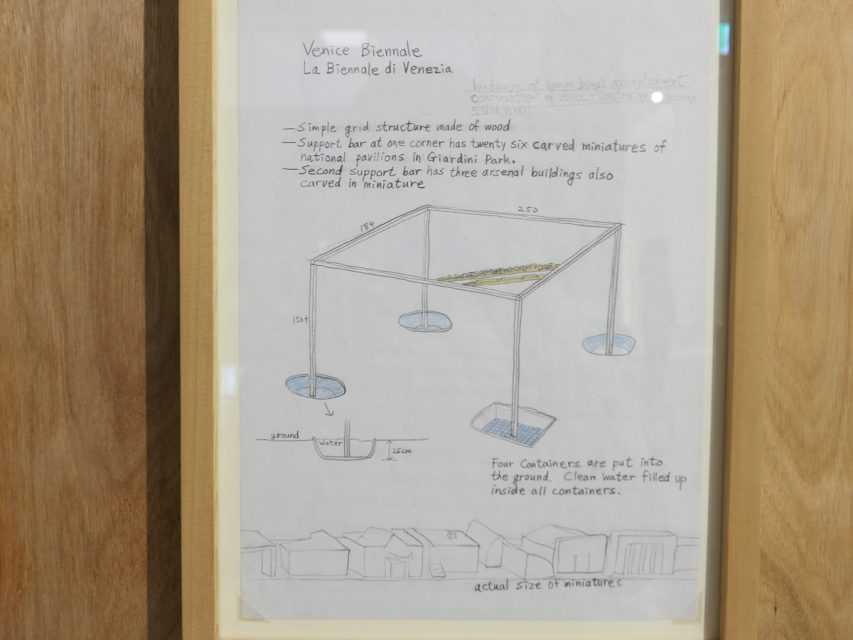 Venice Biennale
La Biennale di Venezia
landscape of human being's accomplishment
construction of
—Simple grid structure made of wood
—Support bar at one corner has twenty six carved miniatures of
national pavilions in Giardini Park.
—Second support bar has three arsenal buildings also
carved in miniature
184
250
150+
ground
water
25cm
Four Containers are put into
the ground. Clean water filled up
inside all containers.
actual size of miniatures